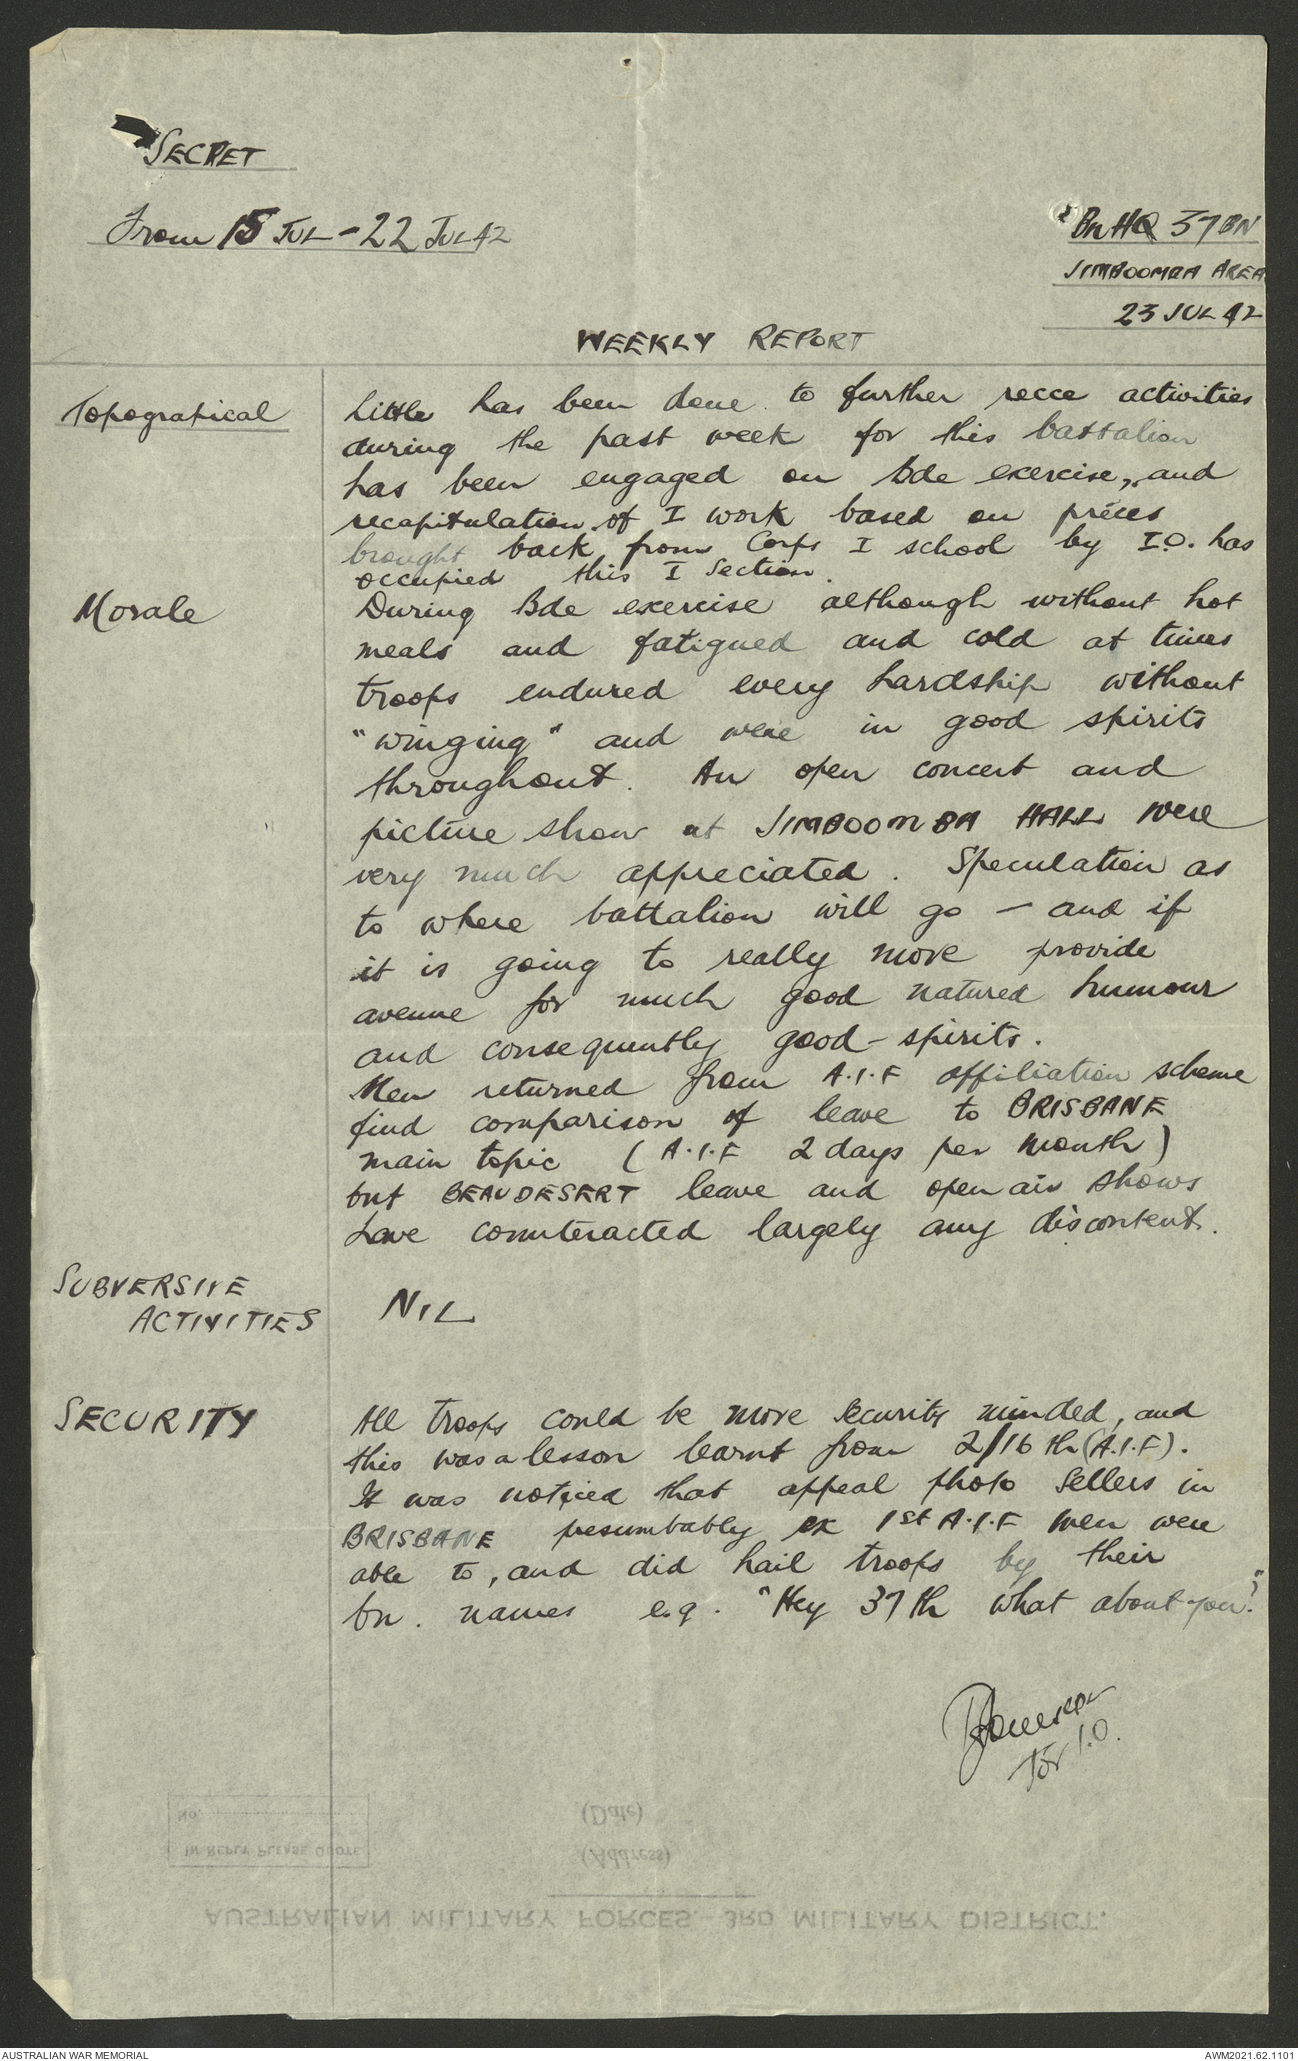 SECRET
From 15 JUL - 22 JUL 42
Bn HQ 37 BN
JIMBOOMBA AREA
23 JUL 42
WEEKLY REPORT
Topograpical
Little has been done to further recce activities
during the past week for this battalion
has been engaged on Bde exercise, and
recapitulation of I work based on précis
brought back from Corps I school by I.O. has
occupied this I Section.
Morale
During Bde exercise although without hot
meals and fatigued and cold at times
troops endured every hardship without
"winging" and were in good spirits
throughout. An open concert and
picture show at JIMBOOMBA HALL were
very much appreciated. Speculation as
to where battalion will go - and if
it is going to really move provide
avenue for much good natured humour
and consequently good-spirits.
Men returned from A.I.F affiliation scheme
find comparison of leave to BRISBANE
main topic (A.I.F 2 days per month)
but BEAUDESERT leave and open air shows
have counteracted largely any discontent.
SUBVERSIVE
ACTIVITIES
NIL
SECURITY
All troops could be more security minded, and
this was a lesson learnt from 2/16th (A.I.F).
It was noticed that appeal photo sellers in
BRISBANE presumbably ex 1st A.I.F men were
able to, and did hail troops by their
bn. names e.g. "Hey 37th what about you?"
for I.O.
No.
IN REPLY PLEASE QUOTE
(Date)
(Address)
AUSTRALIAN MILITARY FORCES - 3RD MILITARY DISTRICT.
AUSTRALIAN WAR MEMORIAL
AWM2021.62.1101